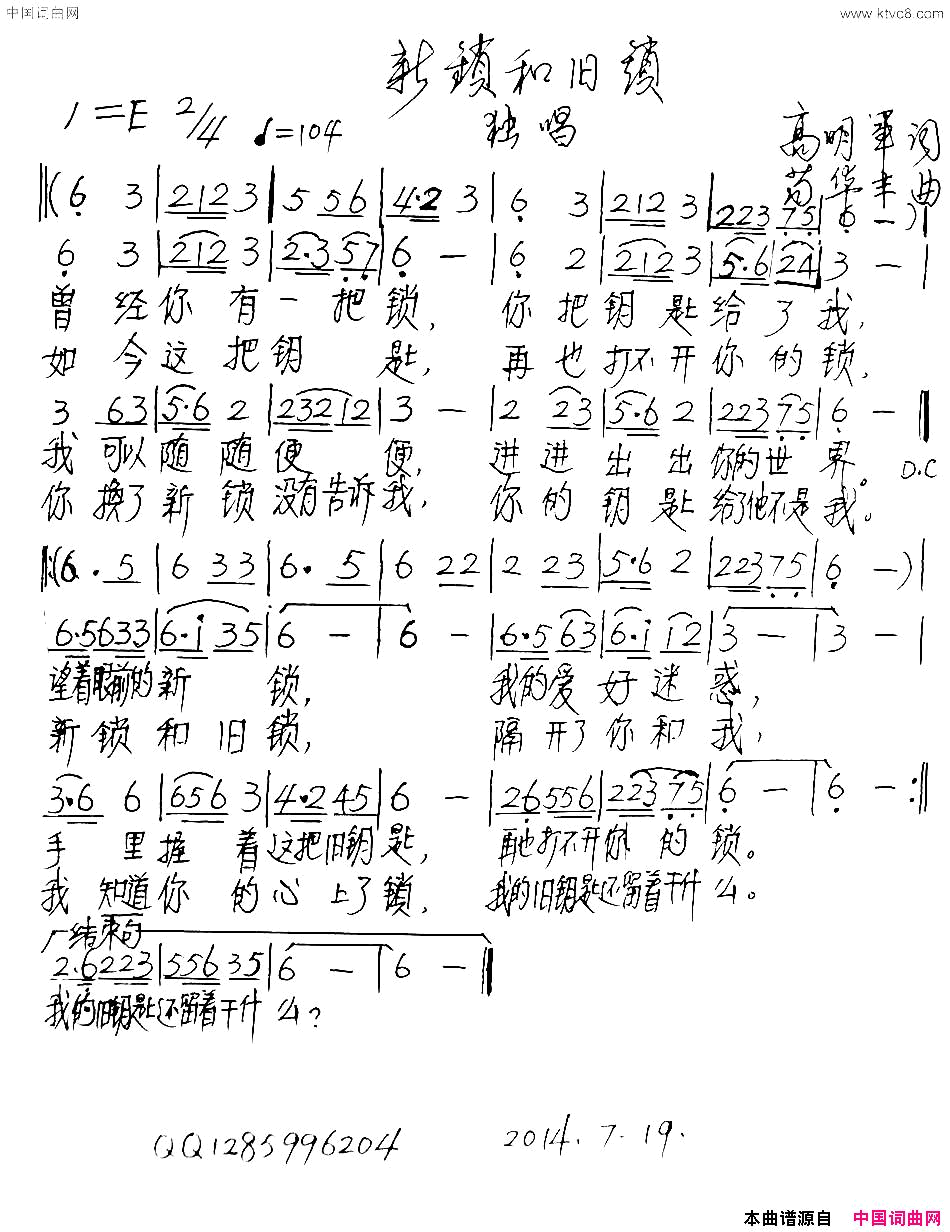 中国词曲网 www.ktvc8.com
新鎖和旧鎖
1=E 2/4 ♩=104 独唱
高明軍词
苟华丰曲
‖(6̣ 3 | 212 3 | 5 56 | 4·2 3 | 6̣ 3 | 212 3 | 223 7̣5̣ | 6̣ - ) |
6̣ 3 | 212 3 | 2·3 5̣7̣ | 6̣ - | 6̣ 2 | 212 3 | 5̣·6̣ 24 | 3 - |
曾经你有一把锁, 你把钥匙给了我,
如今这把钥匙, 再也打不开你的锁,
3 63 | 5·6 2 | 23212 | 3 - | 2 23 | 5·6 2 | 223 7̣5̣ | 6̣ - ‖
我可以随随便便, 进进出出你的世界。 D.C
你换了新锁没有告诉我, 你的钥匙给了他不是我。
‖:(6· 5 | 6 33 | 6· 5 | 6 22 | 2 23 | 5·6 2 | 223 7̣5̣ | 6̣ - ) |
6·5633 | 6·i 35 | 6 - | 6 - | 6·5 63 | 6·i i2 | 3 - | 3 - |
望着眼前的新锁, 我的爱好迷惑,
新锁和旧锁, 隔开了你和我,
3·6 6 | 656 3 | 4·2 45 | 6 - | 26̣556 | 223 7̣5̣ | 6̣ - | 6̣ - :‖
手里握着这把旧钥匙, 再也打不开你的锁。
我知道你的心上了锁, 我的旧钥匙还留着干什么。
结束句
2·6̣223 | 556 35 | 6 - | 6 - ‖
我的旧钥匙还留着干什么?
QQ1285996204 2014.7.19.
本曲谱源自 中国词曲网